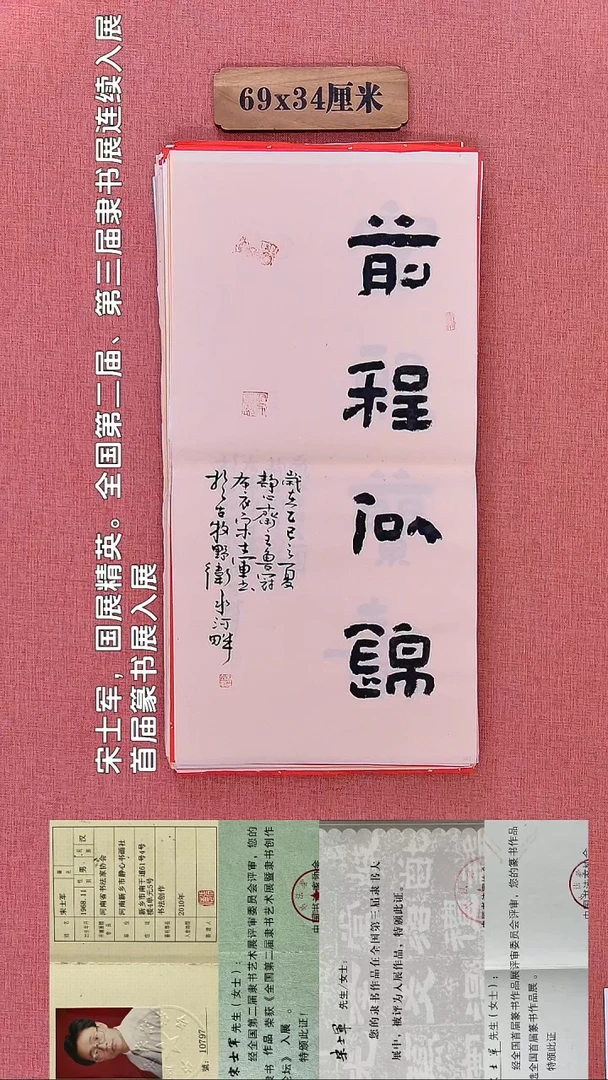 宋士军，国展精英。全国第二届、第三届隶书展连续入展
首届篆书展入展
69x34厘米
前程似锦
歲在乙巳之酉
静心齋主魯骍
布衣宋士軍書
於古牧野衛水河畔
宋士军
1968.11
男
汉
河南省书法家协会
河南新乡市静心书画社
新乡市南干道81号4号
楼4单元5号
书法创作
2010年
號：10797
宋士军 先生（女士）：
经全国第二届隶书艺术展评审委员会评审，您的
隶书 作品 荣获《全国第二届隶书艺术展暨隶书创作
论坛》入展 。
特颁此证！
宋士军 先生/女士：
您的隶书作品在全国第三届隶书大
展中，被评为入展作品，特颁此证。
士军 先生（女士）：
经全国首届篆书作品展评审委员会评审，您的篆书作品
选全国首届篆书作品展 。
特颁此证